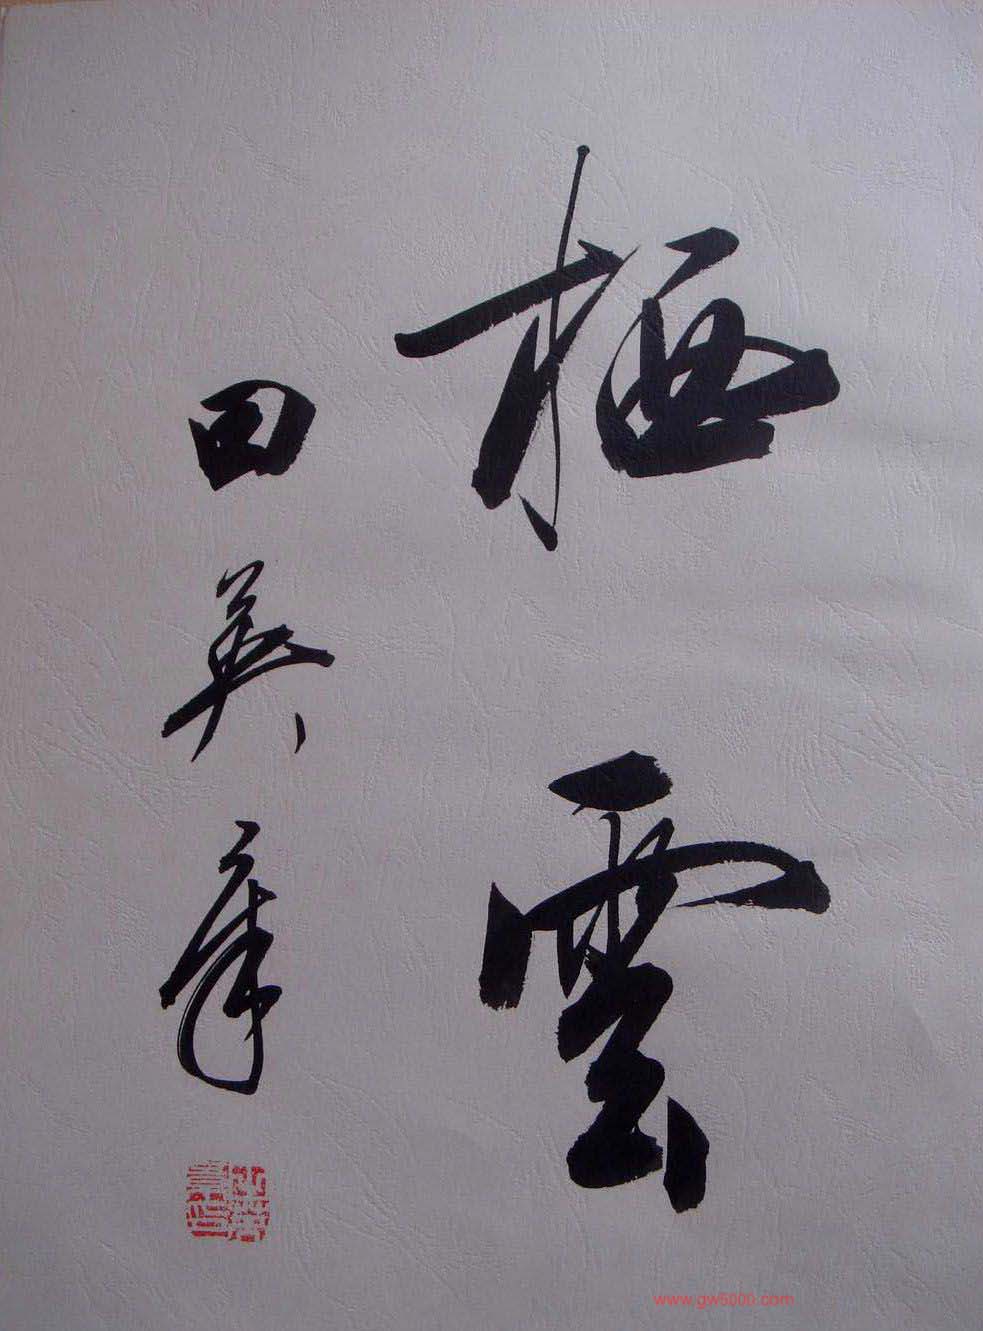 栖雲
田英章
www.gw5000.com